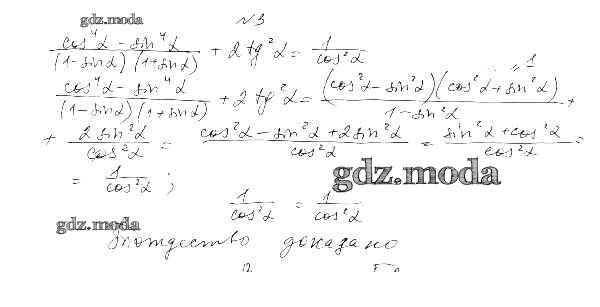 gdz.moda
N3
(cos⁴α - sin⁴α)/((1-sinα)(1+sinα)) + 2tg²α = 1/cos²α
(cos⁴α - sin⁴α)/((1-sinα)(1+sinα)) + 2tg²α = ((cos²α - sin²α)(cos²α + sin²α))/(1-sin²α) + " 1
+ 2sin²α/cos²α = (cos²α - sin²α + 2sin²α)/cos²α = (sin²α + cos²α)/cos²α =
= 1/cos²α ;
gdz.moda
1/cos²α = 1/cos²α
gdz.moda
Тождество доказано